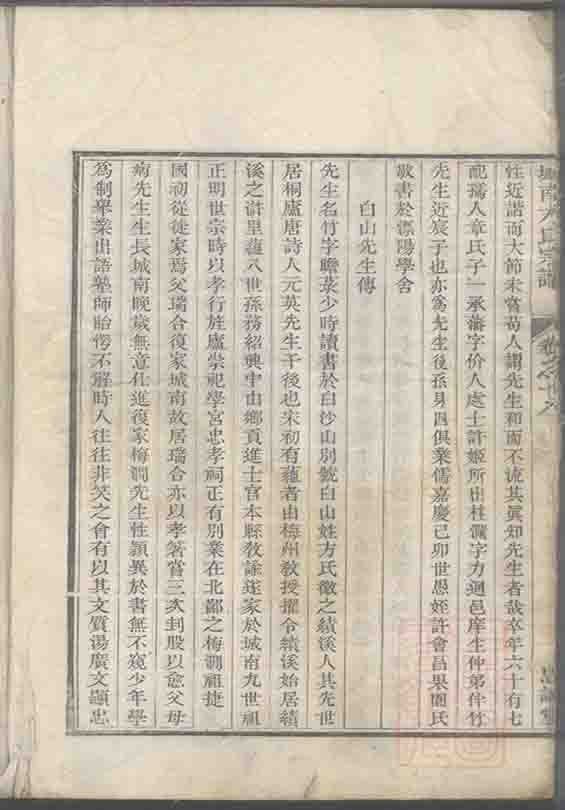 城南方氏宗譜
性近諧而大節未嘗苟人謂先生和而不流其眞知先生者哉卒年六十有七
配孺人章氏子一承藩字价人處士許姬所出桂馪字力迴邑庠生仲弟件竹
先生近裔子也亦爲先生後孫男四俱業儒嘉慶己卯世愚姪許會昌果園氏
敬書於溧陽學舍
白山先生傳
先生名竹字瞻菉少時讀書於白沙山別號白山姓方氏徽之績溪人其先世
居桐廬唐詩人元英先生干後也宋初有蘊者由梅州敎授擢令績溪始居績
溪之滸里蘊八世孫務紹興中由鄉貢進士官本縣敎諭遂家於城南九世祖
正明世宗時以孝行旌廬崇祀學宮忠孝祠正有別業在北鄙之梅澗祖捷
國初從徙家焉父瑞合復家城南故居瑞合亦以孝著嘗三次刲股以愈父母
病先生生長城南晚歲無意仕進復家梅澗先生性穎異於書無不窺少年學
爲制舉業出語塾師眙愕不解時人往往非笑之會有以其文質湯廣文顯忠